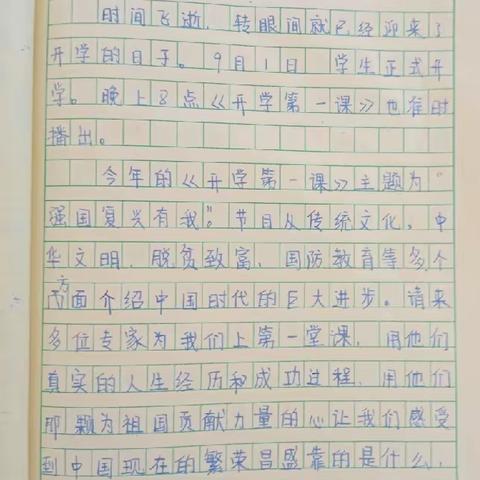 时间飞逝，转眼间就已经迎来了
开学的日子。9月1日 学生正式开
学。晚上8点《开学第一课》也准时
播出。
今年的《开学第一课》主题为“
强国复兴有我”。节目从传统文化、中
华文明、脱贫致富、国防教育等多个
方面介绍中国时代的巨大进步。请来
多位专家为我们上第一堂课，用他们
真实的人生经历和成功过程，用他们
那颗为祖国贡献力量的心让我们感受
到中国现在的繁荣昌盛靠的是什么，